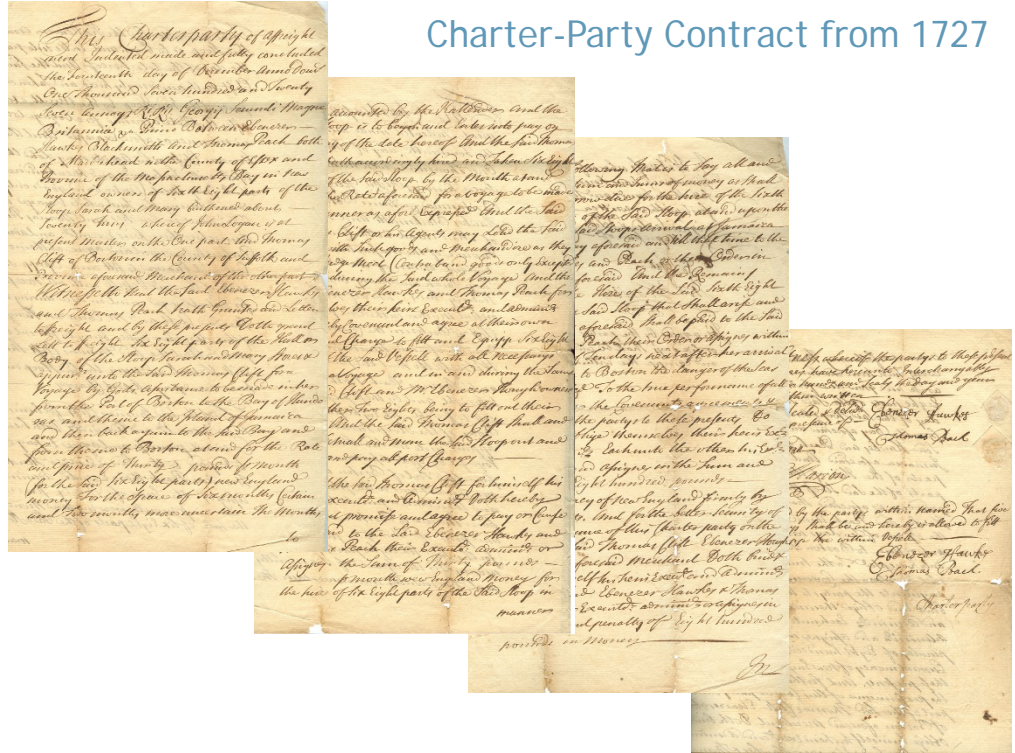 Charter-Party Contract from 1727
This Charterparty of affreight
ment Indented made and fully concluded
the fourteenth day of December Anno Dom
One Thousand Seven hundred and Twenty
Seven Annoq RRs Georgij Secundi Magna
Britannia &a Primo Between Ebenezer
Hawkes Blacksmith and Thomas Peach both
of Marblehead in the County of Essex and
Province of the Massachusetts Bay in New
England owners of Sixth Eight parts of the
Sloop Sarah and Mary burthened about
Seventy tuns whereof John Logan is at
present Master on the One part And Thomas
Clift of Boston in the County of Suffolk and
Province aforesaid Merchant of the other part
Witnesseth that the Said Ebenezer Hawkes
and Thomas Peach hath Granted and Letten
to freight and by these presents Doth grant
and Lett to freight Six Eight parts of the Hull or
Body of the Sloop Sarah and Mary
unto the Said Thomas Clift for a
Voyage by Gods assistance to be made in her
from the Port of Boston to the Bay of Hondu
ras and thence to the Island of Jamaica
and then back again to the Said Bay and
from thence to Boston at and for the Rate
and price of Thirty pounds month
for the Said Six Eight parts New England
money For the Space of Six months Certain
and Six months more uncertain the Months
to
accounted by the Kalender and the
loop is to begin and Enter into pay on
y of the date hereof And the Said Thomas
hath accordingly hired and Taken Six Eight
of the Said Sloop by the Month at and
Rate aforesaid for a Voyage to be made
nner as afore Expressed And the Said
Clift or his Agents may Load the Said
with Such goods and Merchandize as they
meet Contraband goods only Except
during the Said whole Voyage And the
enezer Hawkes and Thomas Peach for
their heirs Execut and admind
by Covenant and agree at their own
Charge to fitt and Equipp Six Eight
the Said Vessell with all necessarys
Voyage and in and during the Same
Clift and Mr Ebenezer owners
two Eights being to fitt out their
And the Said Thomas Clift Shall and
and man the Said Sloop out and
and pay all port Charges
the Said Thomas Clift for himself his
Execut and admind Doth hereby
promise and agree to pay or Cause
to the Said Ebenezer Hawkes and
Peach their Execut admind or
Assignes the Sum of Thirty pounds
month New England Money for
the hire of Six Eight parts of the Said Sloop in
manner
following That is to Say all and
Such Sum or Sums of money as Shall
due for the hire of the Sixth
of the Said Sloop at and upon the
Said Sloops arrival at Jamaica
aforesaid and that time to the
and Peach or their Order in
foresaid And the Remaining
Hire of the Said Sixth Eight
Said Sloop that Shall arise and
aforesaid Shall be paid to the Said
Peach their Order or assignes within
Ten days next after her arrival
to Boston the danger of the Seas
To the true performance of all
the Covenants
the partys to these presents Do
oblige themselves their heirs Exe
Each unto the other his
nd assignes in the Sum and
Eight hundred pounds
ney of New England firmly by
And for the better Security of
of this Charter party on the
Said Thomas Clift Ebenezer
foresaid Merchant Doth binde
elf his heirs Execut and admind
Ebenezer Hawkes & Thomas
Execut admind or assignes in
penalty of Eight hundred
pounds in Money
In
ness whereof the partys to these present
have hereunto Interchangably
hands and Seals the day and year
above written
Ebenezer Hawkes
Thomas Peach
by the partys within named That five
Shall be and hereby is allowed to fitt
the within Vessell
Ebenezer Hawkes
Thomas Peach
Charterparty